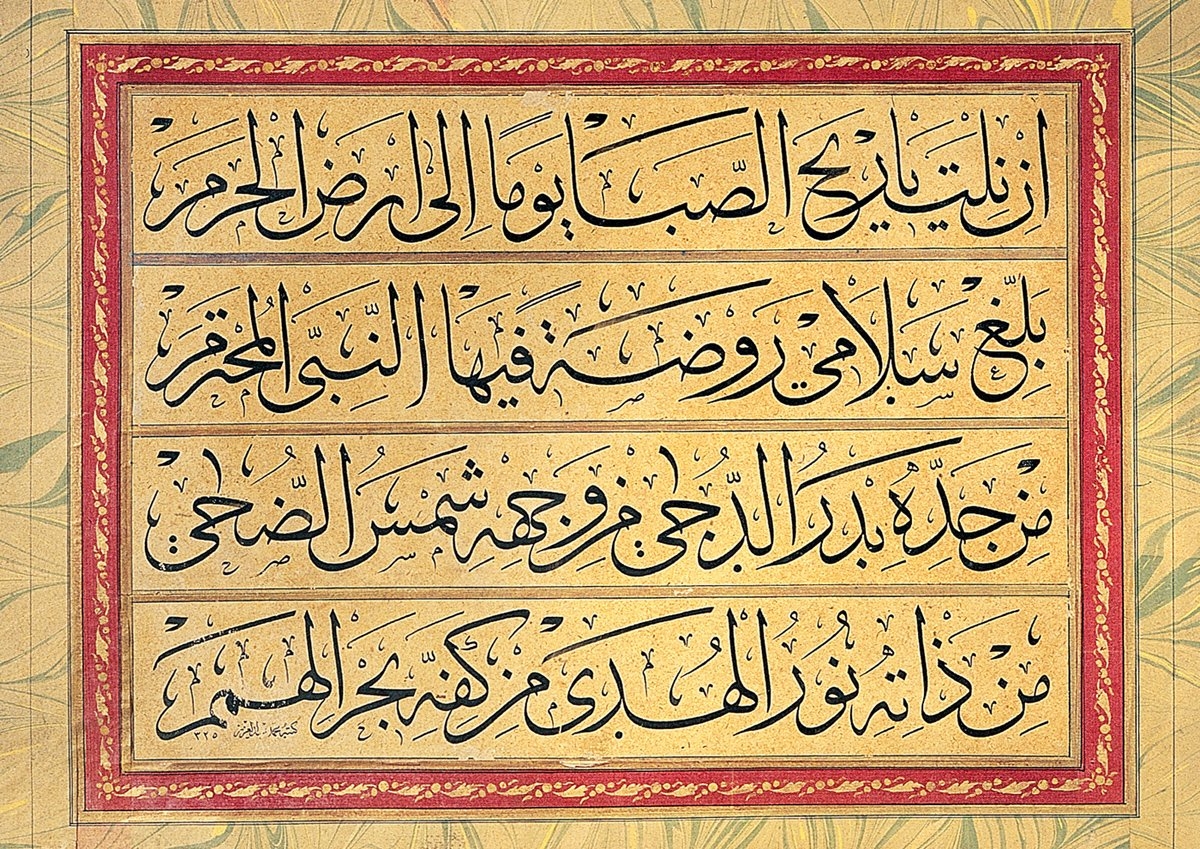 ان نلت يا ريح الصّبا يوما الى ارض الحرم
بلّغ سلامي روضة فيها النّبيّ المحترم
من خدّه بدر الدّجى من وجهه شمس الضّحى
من ذاته نور الهدى من كفّه بحر الهمم
٣٢٥